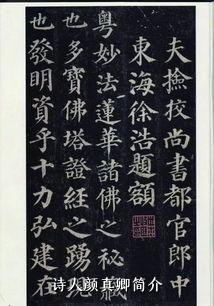 夫撿挍尚書都官郎中
東海徐浩題額
粵妙法蓮華諸佛之秘藏
也多寶佛塔證經之踊現
也發明資乎十力弘建在
诗人颜真卿简介